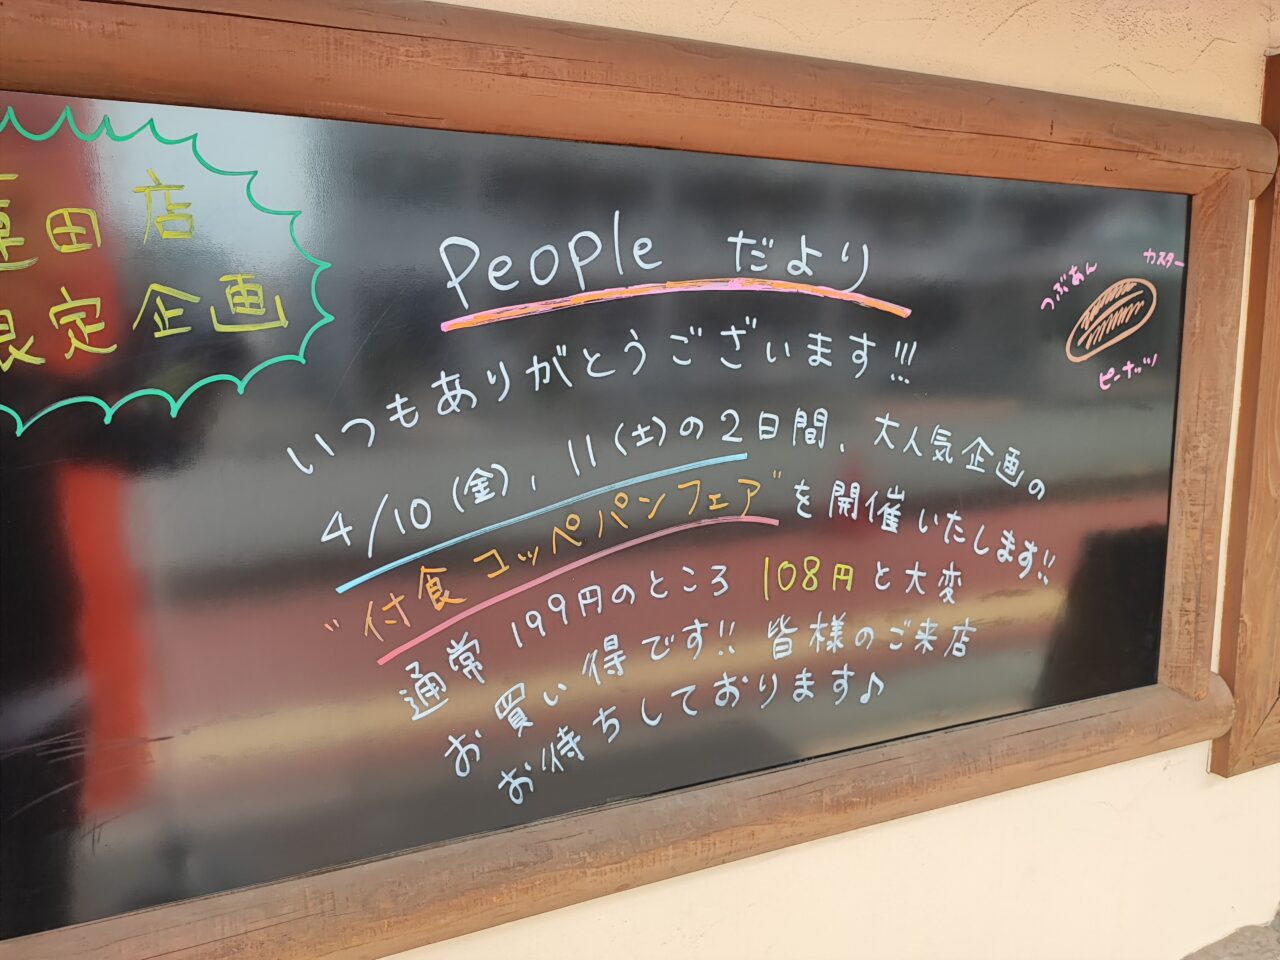 田店
定企画
People だより
いつもありがとうございます!!!
4/10(金)、11(土)の2日間、大人気企画の
"付食コッペパンフェア"を開催いたします!!
通常199円のところ108円と大変
お買い得です!! 皆様のご来店
お待ちしております♪
つぶあん
カスター
ピーナッツ